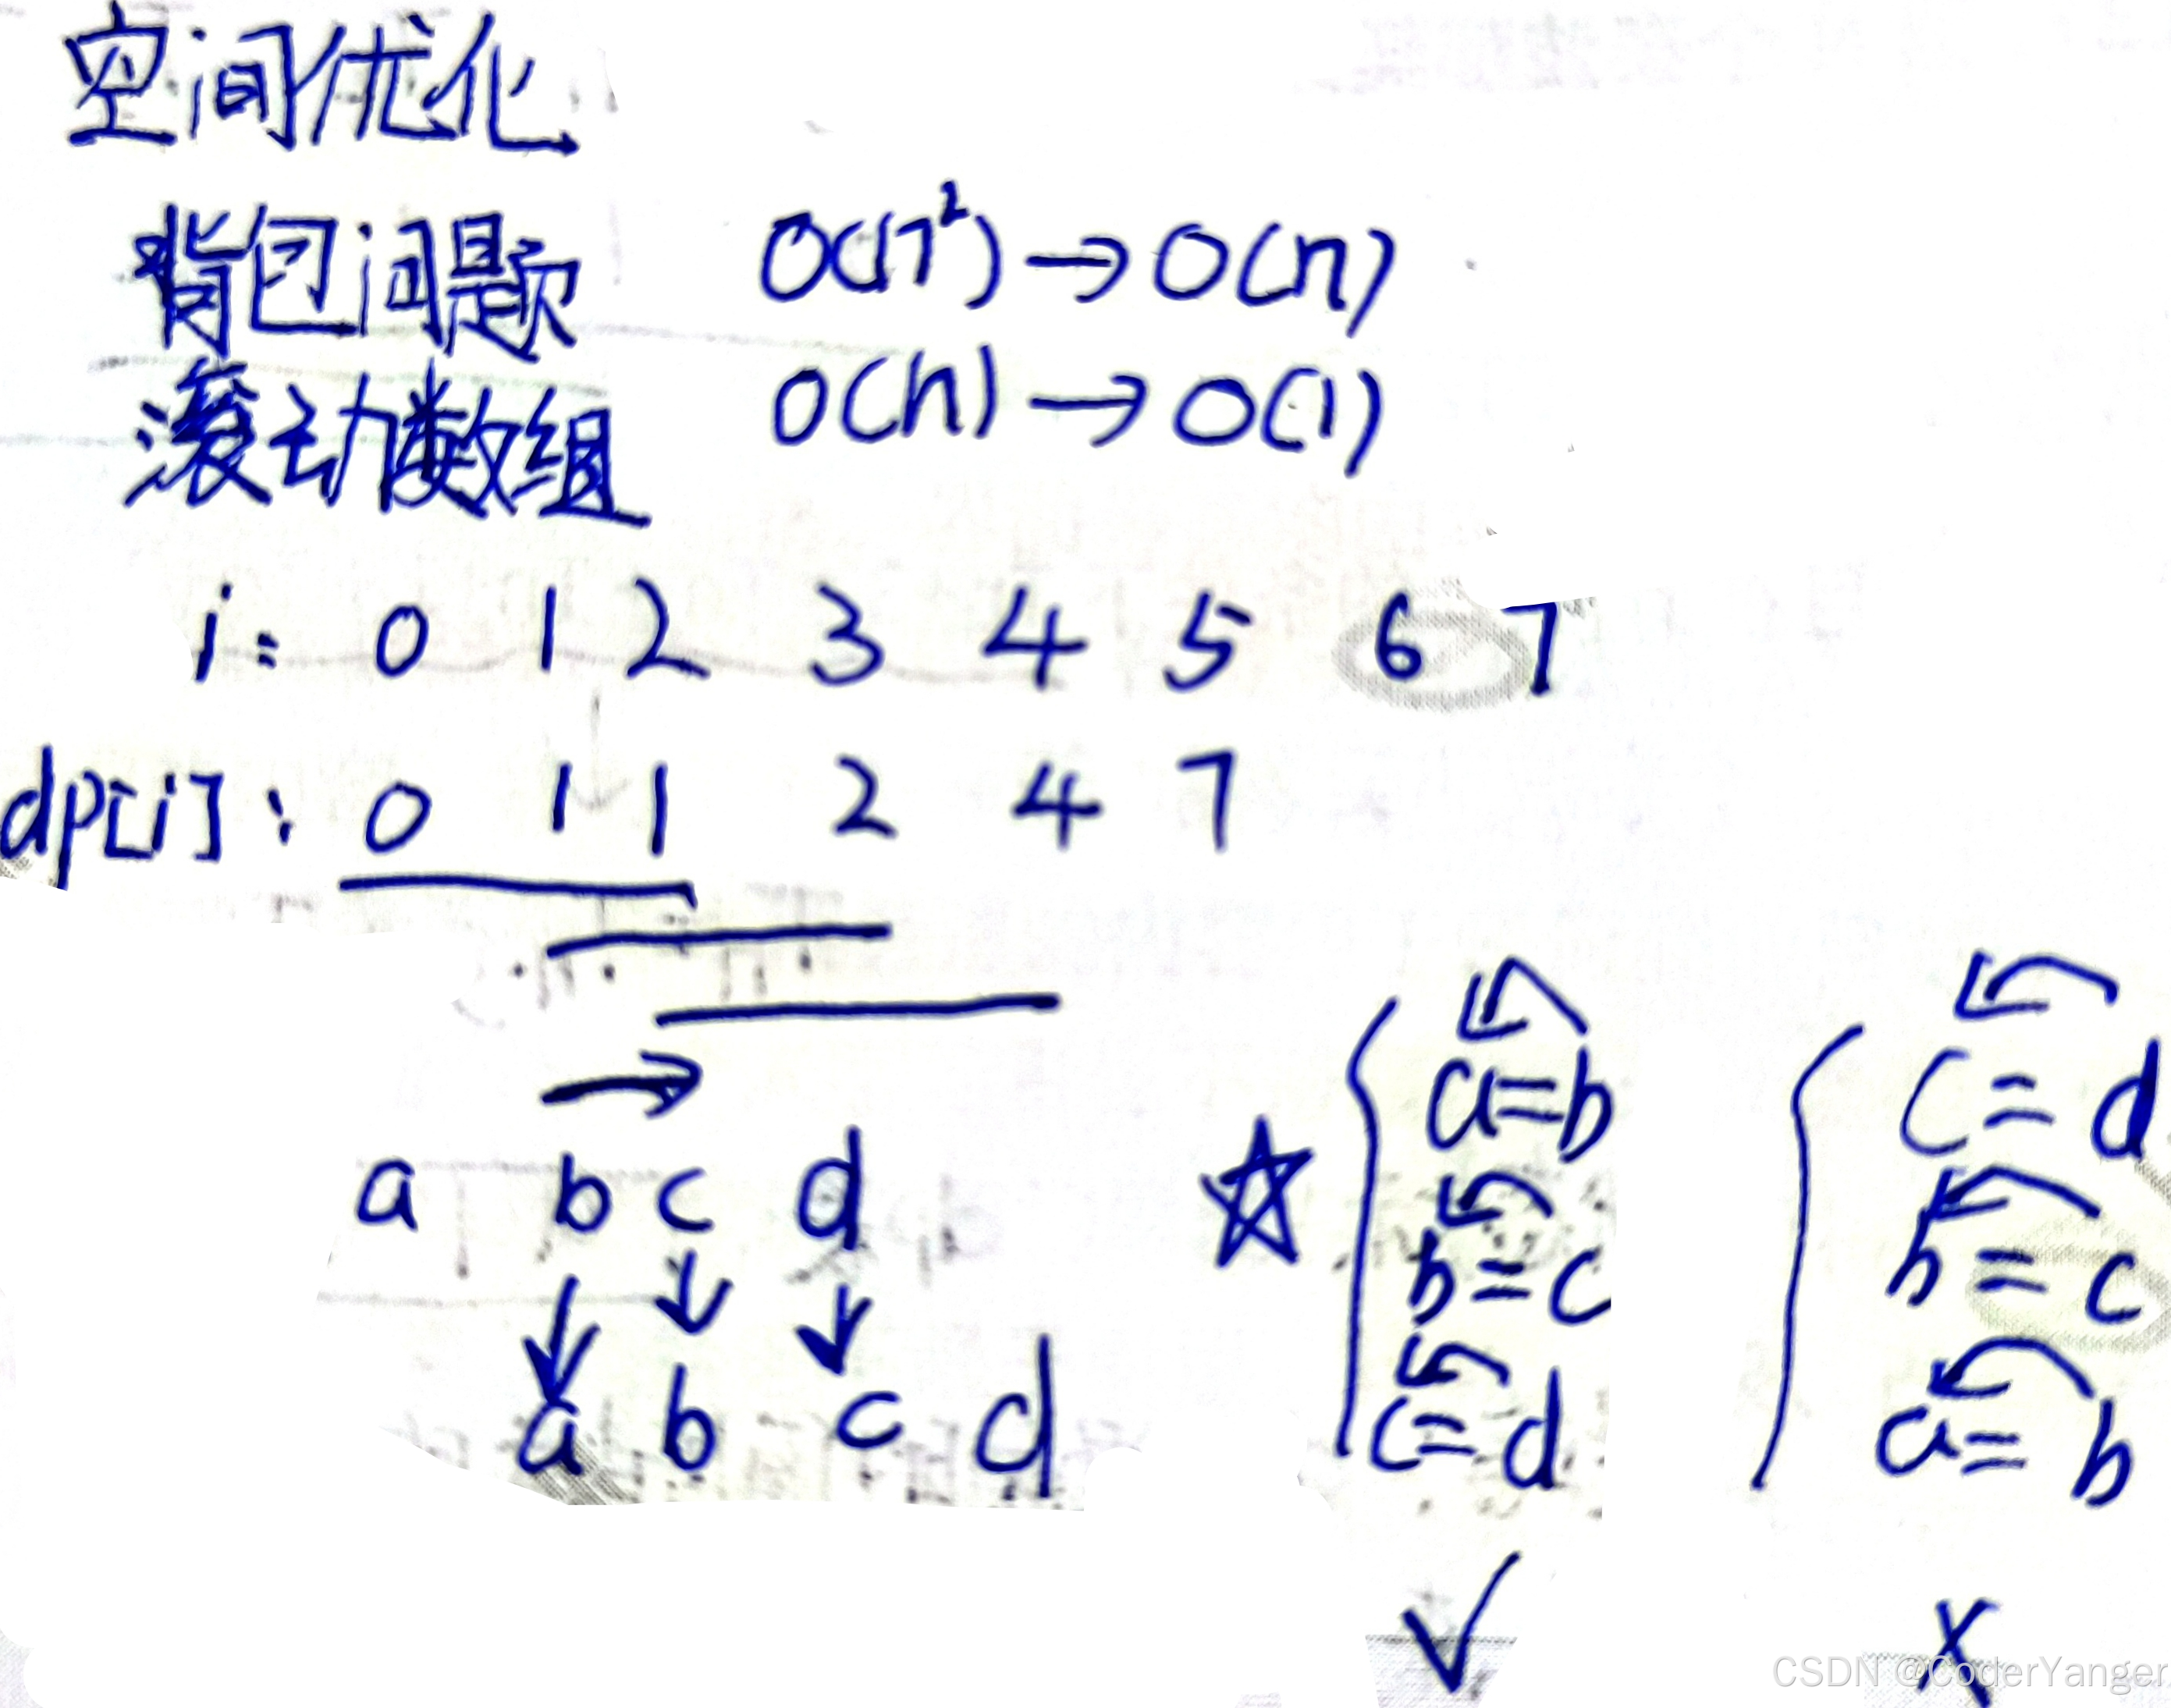 空间优化
背包问题 O(n²)→O(n)
滚动数组 O(n)→O(1)
i: 0 1 2 3 4 5 6 7
dp[i]: 0 1 1 2 4 7
→
a b c d
↓ ↓ ↓
a b c d
☆
a=b
b=c
c=d
✓
c=d
b=c
a=b
×
CSDN @CoderYanger